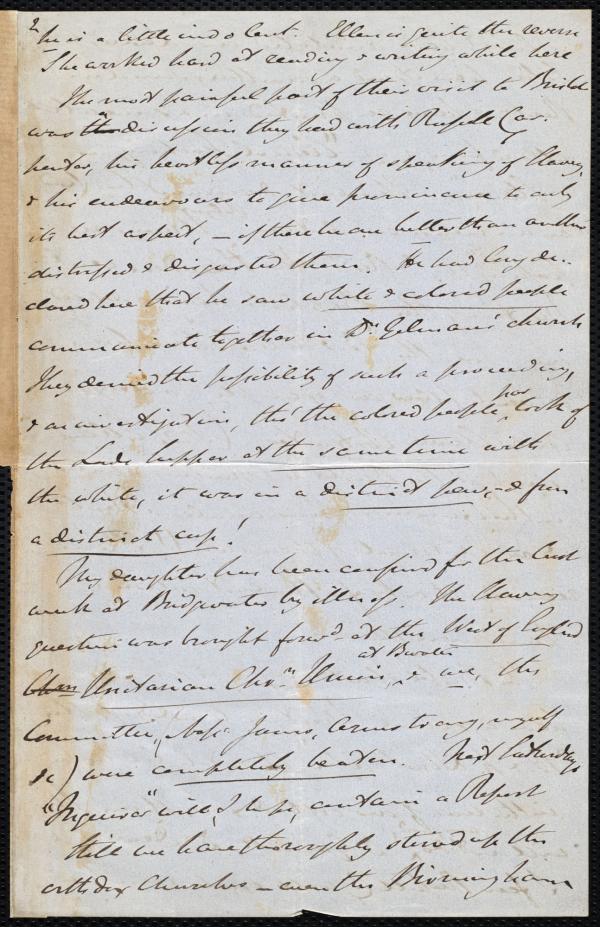 2
he is a little indolent. Ellen is quite the reverse
She worked hard at reading & writing while here
The most painful part of their visit to Bristol
was the discussion they had with Russell Car-
penter, his heartless manner of speaking of slavery,
& his endeavours to give prominence to only
its best aspect, – if there be one better than another
distressed & disgusted them. He had long de-
clared here that he saw white & colored people
communicate together in Dr. Gilman's church
They denied the possibility of such a proceeding,
& on investigation, tho' the colored people took of
the Lord's supper at the same time with
the white, it was in a distinct pew, & from
a distinct cup!
My daughter has been confined for the last
week at Bridgwater by illness. The Slavery
question was brought forwd. at the West of England
Unitarian Chrn. Union, at Bwater & we, the
Committee, Messrs. James, Armstrong, myself
&c) were completely beaten. Next Saturday's
"Inquirer" will, I hope, contain a Report
Still we have thoroughly stirred up the
orthodox Churches – even the Birmingham